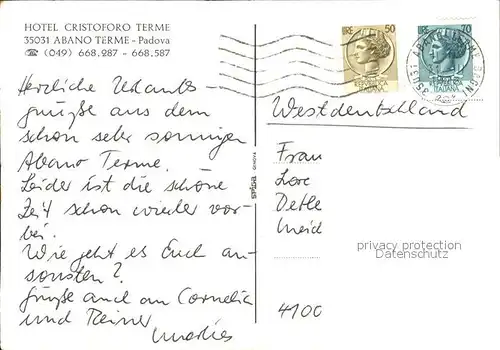 HOTEL CRISTOFORO TERME
35031 ABANO TERME - Padova
☎ (049) 668.287 - 668.587
LIRE 50
LIRE 70
ITALIANA
ITALIANA
Herzliche Urlaubs-
grüße aus dem
schon sehr sonnigen
Abano Terme.
Leider ist die schöne
Zeit schon wieder vor-
bei.
Wie geht es Euch an-
sonsten?
Grüße auch an Cornelia
und Rainer
Marlies
GENOVA
Westdeutschland
Frau
Lore
privacy protection
Datenschutz
4100